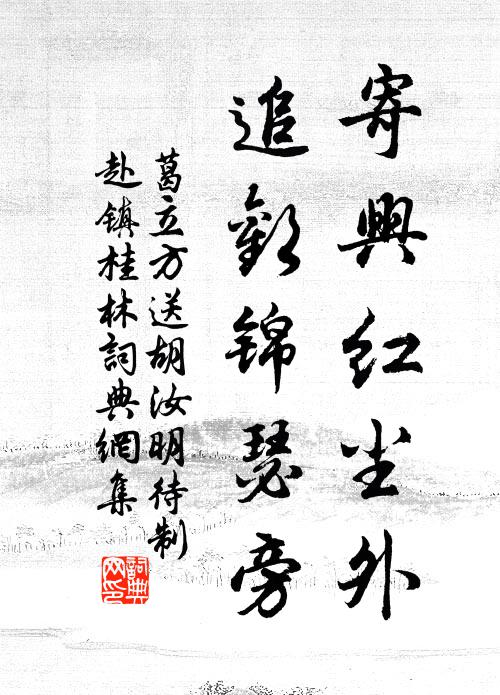 寄興红尘外
追歡锦瑟旁
葛立方送胡汝明待制
赴镇桂林詞典網集
詞典
网印